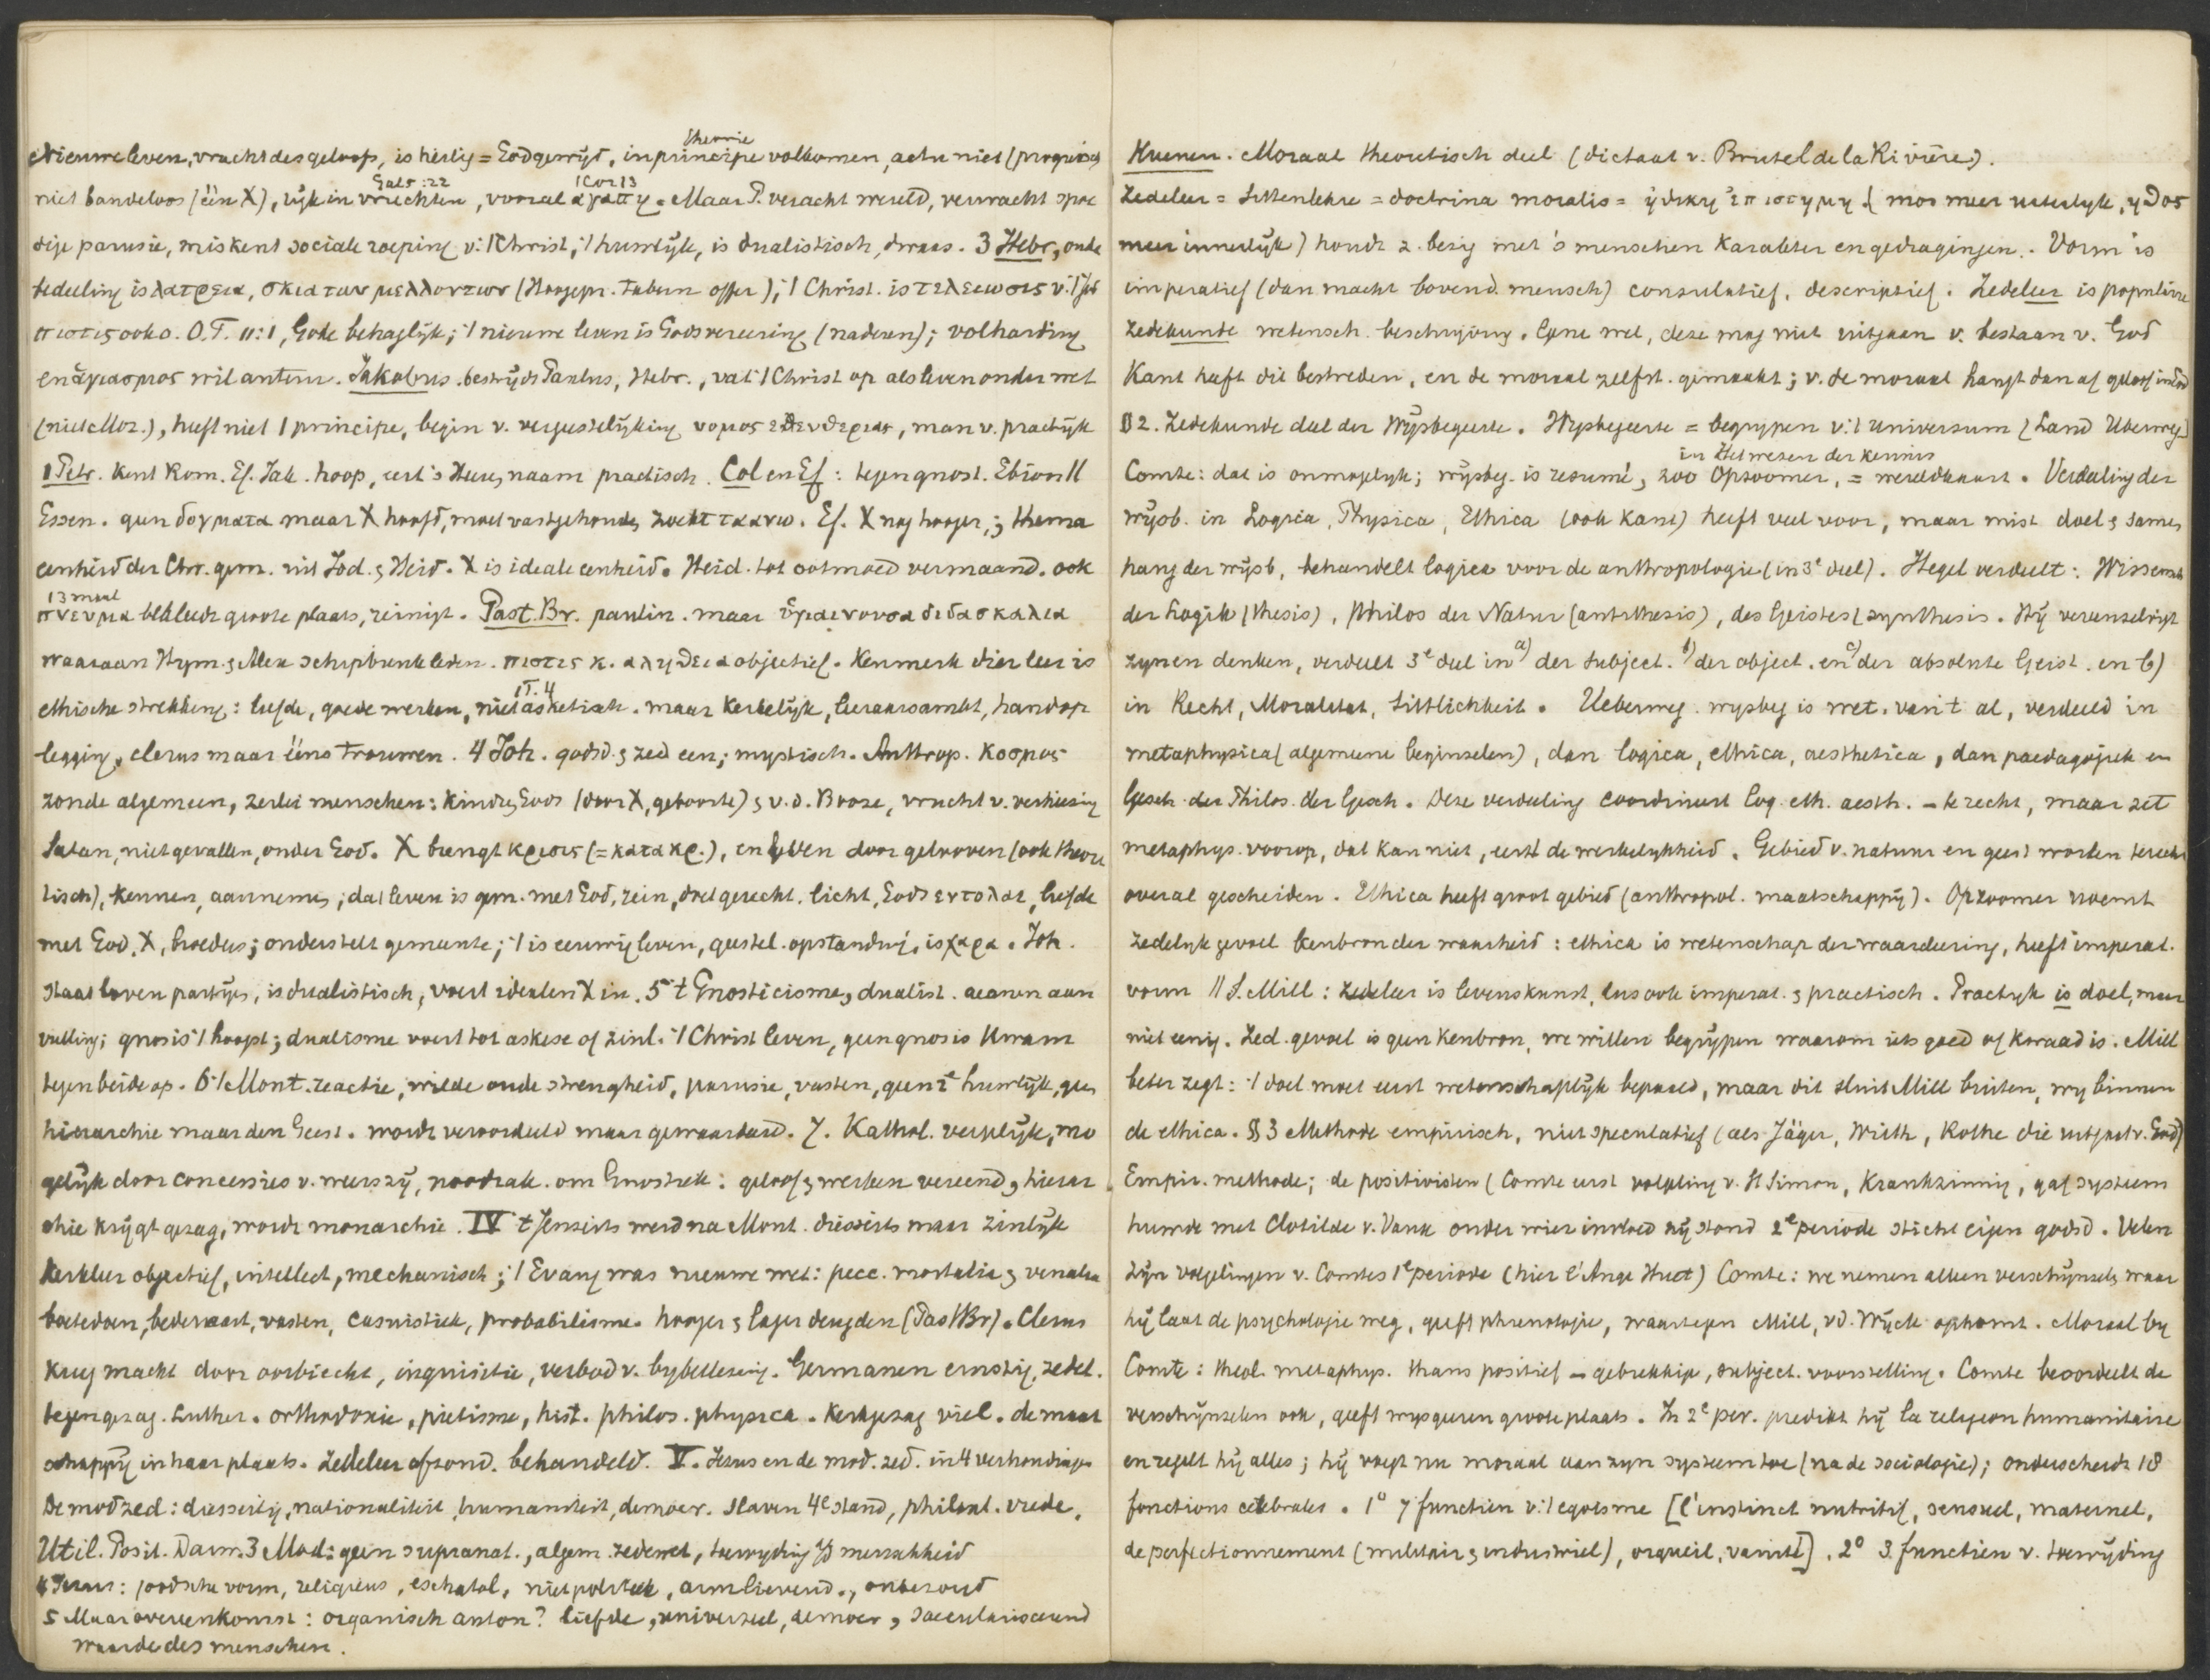 Nieuwe leven, vrucht des geloofs, is heilig = God gewijd, in principe theorie volkomen, actu niet (progressief
niet bandeloos (één X), rijk in vruchten Gal 5:22, vooral αγαπη 1 Cor 13. Maar P. veracht wereld, verwacht spoe
dige parusie, miskent sociale roeping v. 't Christ, 't huwlijk, is dualistisch, dwaas. 3 Hebr, oude
bedeeling is λατρεια, σκια των μελλοντων (Hoogepr. tabern offer); 't Christ. is τελειωσις v. 't Jod
πιστις ook o. O.T. 11:1, Gode behaglijk; 't nieuwe leven is Godsvereering (naderen); volharding
en ἁγιασμος wil auteur. Jakobus bestrijdt Paulus, Hebr., vat 't Christ op als leven onder wet
(niet Moz.), heeft niet 1 principe, begin v. vergeestelijking νομος ελευθεριας, man v. practijk
1 Petr. kent Rom. Ef. Jak. hoop, eert 's Heeren naam practisch. Col en Ef: tegen gnost. Ebion ||
Essen. geen δογματα maar X hoofd, moet vastgehouden, zoekt τα ανω. Ef. X nog hooger; thema
eenheid der Chr. gem. uit Jod. & Heid. X is ideale eenheid. Heid. tot ootmoed vermaand. ook
πνευμα 13 maal bekleedt groote plaats, reinigt. Past. Br. paulin. maar ὑγιαινουσα διδασκαλια
waaraan Hym. & Alex schipbreuk leden. πιστις κ. αληθεια objectief. Kenmerk dier leer is
ethische strekking: liefde, goede werken, niet asketisch 1 T. 4. maar kerkelijk, leeraarsambt, handop
legging, clerus maar ééns trouwen. 4 Joh. godsd. & zed een; mystisch. Anthrop. κοσμος
zonde algemeen, 2erlei menschen: kindren Gods (door X, geboorte) & v. d. Booze, vrucht v. verkiezing
Satan, niet gevallen, onder God. X brengt κρισις (= κατακρ.), en leven door gelooven (ook theore
tisch), kennen, aannemen; dat leven is gem. met God, rein, doet gerecht. licht, Gods εντολαι, liefde
met God, X, broeders; onderstelt gemeente; 't is eeuwig leven, geestel. opstanding, is χαρα. Joh.
staat boven partijen, is dualistisch, voert idealen X in. 5 't Gnosticisme, dualist. aeonen aan
vulling; gnosis 't hoogst; dualisme voert tot askese of zinl. 't Christ leven, geen gnosis kwam
tegen beide op. 6 't Mont. reactie, wilde oude strengheid, parusie, vasten, geen 2e huwlijk, geen
hierarchie maar den Geest. wordt veroordeeld maar gewaardeerd. 7. Kathol. vergelijk, mo
gelijk door concessies v. weerszij, noodzak. om Gnostiek: geloof & werken vereend, hierar
chie krijgt gezag, wordt monarchie. IV 't Jenseits werd na Mont. diesseits maar zinlijk
kerkleer objectief, intellect, mechanisch; 't Evang was nieuwe wet: pecc. mortalia & venalia
boetedoen, bedevaart, vasten, casuistiek, probabilisme. hooger & lager deugden (Past Br). Clerus
kreeg macht door oorbiecht, inquisitie, verbod v. bybellezing. Germanen ernstig, zedel.
tegen gezag. Luther. orthodoxie, pietisme, hist. philos. physica. kerkgezag viel. de maat
schappij in haar plaats. Zedeleer afzond. behandeld. V. Jezus en de mod. zed. in 4 verhoudingen
De mod zed: diesseitig, nationaliteit, humaniteit, democr. slaven 4e stand, philant. vrede.
Util. Posit. Darw. 3 Mod: geen supranat., algem. zedewet, toewyding
4 Jezus: joodsche vorm, religieus, eschatol, niet politiek, armlievend.,
5 Maar overeenkomst: organisch auton? liefde, universeel, democr, saeculariseerend
waarde des menschen.
Kuenen. Moraal theoretisch deel (dictaat v. Brutel de la Rivière).
Zedeleer = Sittenlehre = doctrina moralis = ἠθικη ἐπιστημη (mos meer uiterlyk, ηθος
meer innerlijk) houdt z. bezig met 's menschen karakter en gedragingen. Vorm is
imperatief (dan macht bovend. mensch) consultatief, descriptief. Zedeleer is populaire
Zedekunde wetensch. beschrijving. Gene wel, deze mag niet uitgaan v. bestaan v. God
Kant heeft dit bestreden, en de moraal zelfst. gemaakt; v. de moraal hangt dan af geloof in God
§ 2. Zedekunde deel der Wijsbegeerte. Wijsbegeerte = begrypen v. 't universum (Land Uberweg)
Comte: dat is onmogelyk; wijsbeg. is resumé, zoo Opzoomer, = wereldkaart in Het wezen der kennis. Verdeeling der
wijsb. in Logica, Physica, Ethica (ook Kant) heeft veel voor, maar mist doel & samen
hang der wijsb, behandelt logica voor de anthropologie (in 3e deel). Hegel verdeelt: Wissensch
der Logik (thesis), Philos der Natur (antithesis), des Geistes (synthesis. Hij vereenzelvigt
zyn en denken, verdeelt 3e deel in a) der subject. b) der object. en c) der absolute Geist. en b)
in Recht, Moralitat, Sittlichkeit. Ueberweg. wysbeg is wet. van 't al, verdeeld in
metaphysica (algemeene beginselen), dan logica, ethica, aesthetica, dan paedagogiek en
Gesch. der Philos. der Gesch. Deze verdeeling coordineert log. eth. aesth. - te recht, maar zet
metaphys. voorop, dat kan niet, eerst de werkelykheid. Gebied v. natuur en geest worden terecht
overal gescheiden. Ethica heeft groot gebied (anthropol. maatschappij). Opzoomer noemt
zedelyk gevoel kenbron der waarheid: ethica is wetenschap der waardeering, heeft imperat.
vorm || S. Mill: zedeleer is levenskunst, dus ook imperat. & practisch. Practyk is doel, maar
niet eenig. Zed. gevoel is geen kenbron, we willen begrijpen waarom iets goed of kwaad is. Mill
beter zegt: 't doel moet eerst wetenschaplijk bepaald, maar dit sluit Mill buiten, wy binnen
de ethica. § 3 Methode empirisch, niet speculatief (als Jäger, Wirth, Rothe die uitgaat v. God)
Empir. methode; de positivisten (Comte eerst volgeling v. St Simon, krankzinnig, gaf systeem
huwde met Clotilde v. Vaux onder wier invloed hij stond 2e periode sticht eigen godsd. Velen
zijn volgelingen v. Comtes 1e periode (hier l'Ange Huet) Comte: we nemen alleen verschijnselen waar
hij laat de psychologie weg, geeft phrenologie, waartegen Mill, vd. Wijck opkomt. Moraal by
Comte: theol. metaphys. thans positief - gebrekkige, subject. voorstelling. Comte beoordeelt de
verschijnselen ook, geeft wysgeeren groote plaats. In 2e per. predikt hij la religion humanitaire
en regelt hij alles; hij voegt nu moraal aan zyn systeem toe (na de sociologie); onderscheidt 18
fonctions cerebrales. 1° 7 functien v. 't egoisme [l'instinct nutritif, sexuel, maternel,
de perfectionnement (militair & industriel), orgueil, vanité]. 2° 3 functien v. toewijding